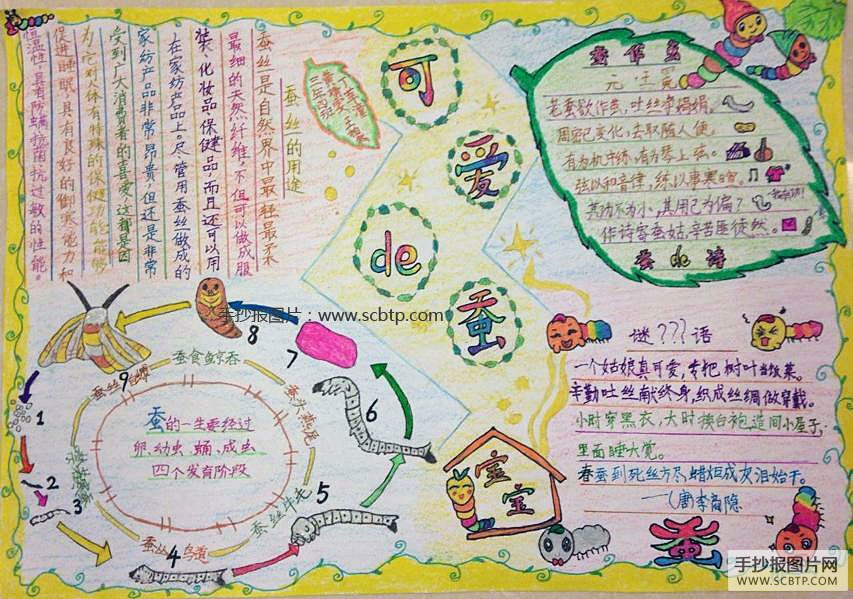 可
爱
de
蚕
宝
宝
蚕丝的用途
蚕丝是自然界中最轻最柔
最细的天然纤维,不但可以做成服
装,化妆品,保健品,而且还可以用
在家纺产品上。尽管用蚕丝做成的
家纺产品非常昂贵,但还是非常
受到广大消费者的喜爱,这都是因
为它对人体有特殊的保健功能,能够
促进睡眠,具有良好的御寒能力和
恒温性,具有防螨,抗菌抗过敏的性能。
蚕作茧
老蚕欲作茧,吐丝净娟娟。
周密已变化,去取随人便。
有为机中练,有为琴上弦。
弦以和音律,练以事寒暄。
其功不为小,其用已为偏?
作诗寄蚕姑,辛苦匪徒然。
蚕de诗
谜???语
一个姑娘真可爱,专把树叶当饭菜。
辛勤吐丝献终身,织成丝绸做穿戴。
小时穿黑衣,大时换白袍,造间小屋子,
里面睡大觉。
春蚕到死丝方尽,蜡炬成灰泪始干。
——(唐)李商隐
蚕
蚕的一生要经过
卵,幼虫,蛹,成虫
四个发育阶段
蚕食鲸吞
蚕丝牛毛
1
2
3
4
5
6
7
8
9
手抄报图片:www.scbtp.com
手抄报图片网
WWW.SCBTP.COM